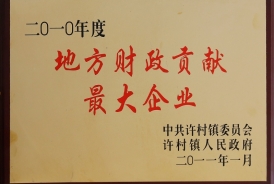 二〇一〇年度
地方财政贡献
最大企业
中共许村镇委员会
许村镇人民政府
二〇一一年一月